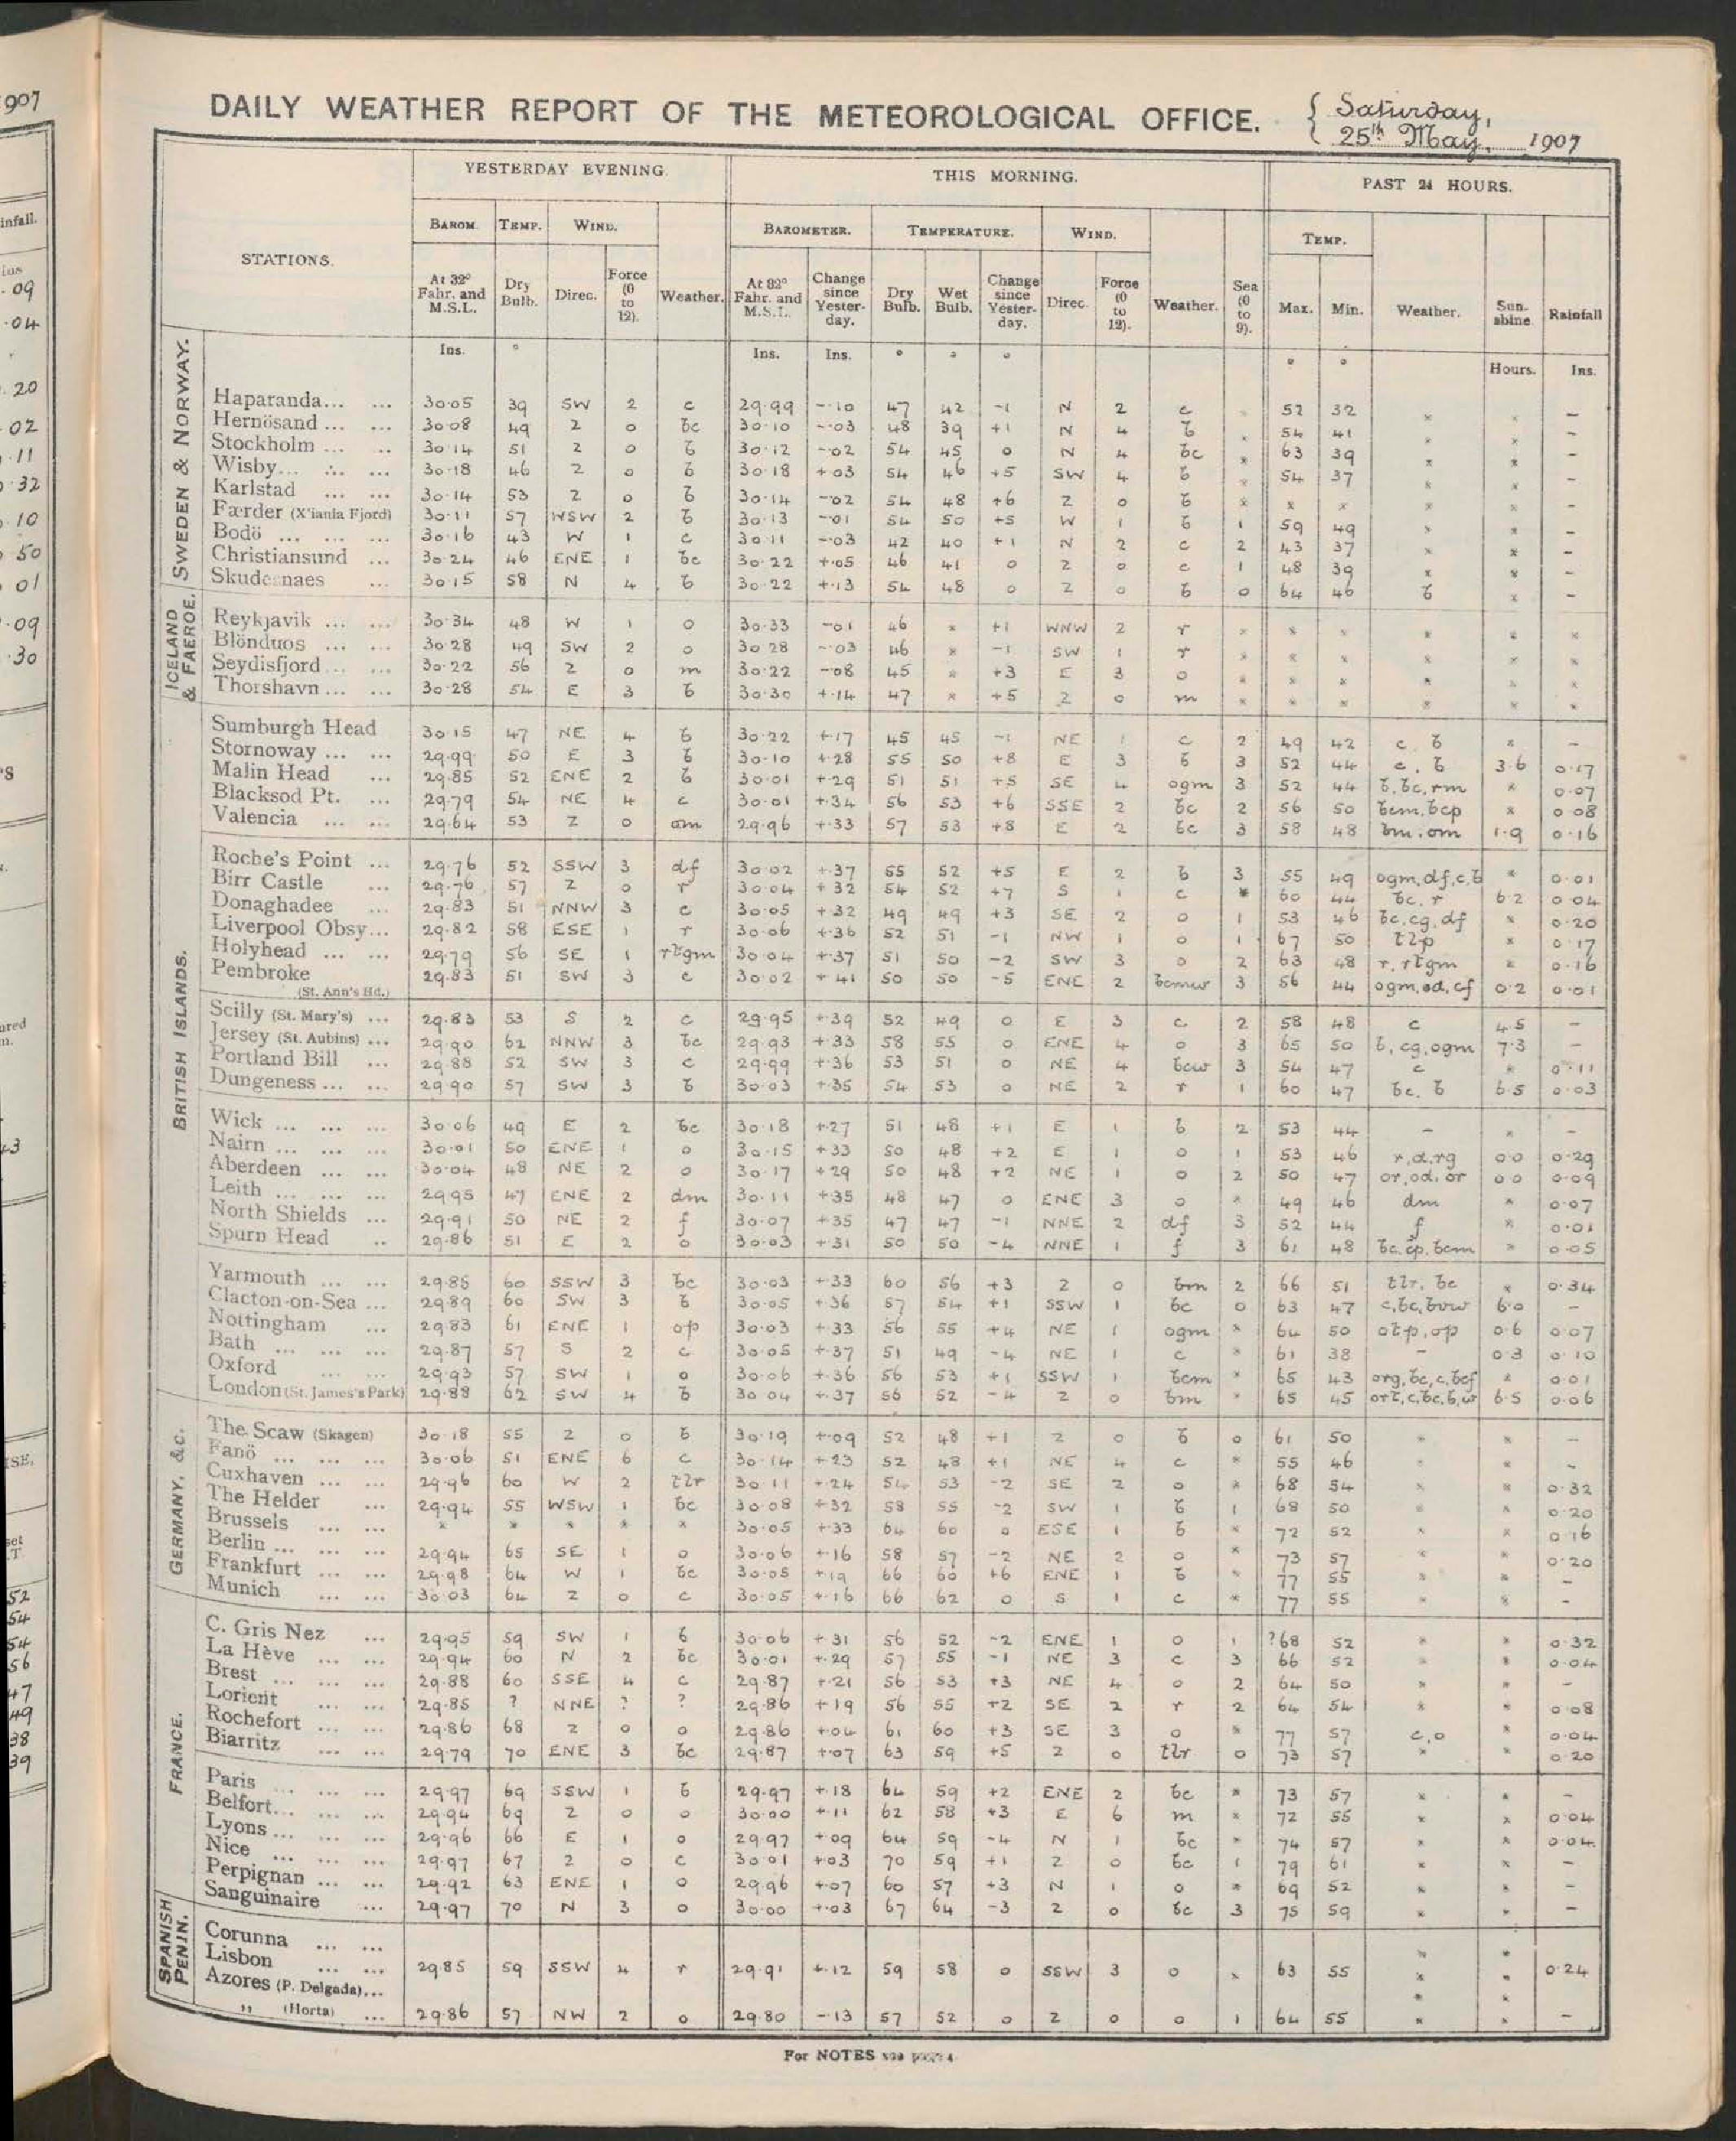 907
infall.
ins
.09
.04
.20
.02
.11
0.32
.10
50
01
.09
.30
's
ured
n.
43
ISE.
set
T
52
54
54
56
47
49
38
39
DAILY WEATHER REPORT OF THE METEOROLOGICAL OFFICE. { Saturday, 25th May, 1907
YESTERDAY EVENING. THIS MORNING. PAST 24 HOURS.
BAROM. TEMP. WIND. BAROMETER. TEMPERATURE. WIND. TEMP.
STATIONS. At 32° Fahr. and M.S.L. Dry Bulb. Direc. Force (0 to 12). Weather. At 32° Fahr. and M.S.L. Change since Yesterday. Dry Bulb. Wet Bulb. Change since Yesterday. Direc. Force (0 to 12). Weather. Sea (0 to 9). Max. Min. Weather. Sunshine Rainfall
Ins. ° Ins. Ins. ° ° ° ° ° Hours. Ins.
SWEDEN & NORWAY.
Haparanda... ... 30.05 39 SW 2 c 29.99 -.10 47 42 -1 N 2 c * 52 32 * * –
Hernösand ... ... 30.08 49 Z 0 bc 30.10 -.03 48 39 +1 N 4 b * 54 41 * * –
Stockholm ... .. 30.14 51 Z 0 b 30.12 -.02 54 45 0 N 4 bc * 63 39 * * –
Wisby... ... ... 30.18 46 Z 0 b 30.18 +.03 54 46 +5 SW 4 b * 54 37 * * –
Karlstad ... ... 30.14 53 Z 0 b 30.14 -.02 54 48 +6 Z 0 b * * * * * –
Færder (X'iania Fjord) 30.11 57 WSW 2 b 30.13 -.01 54 50 +5 W 1 b 1 59 49 * * –
Bodö ... ... ... 30.16 43 W 1 c 30.11 -.03 42 40 +1 N 2 c 2 43 37 * * –
Christiansund ... 30.24 46 ENE 1 bc 30.22 +.05 46 41 0 Z 0 c 1 48 39 * * –
Skudesnaes ... 30.15 58 N 4 b 30.22 +.13 54 48 0 Z 0 b 0 64 46 b * –
ICELAND & FAEROE.
Reykjavik ... ... 30.34 48 W 1 o 30.33 -.01 46 * +1 WNW 2 r * * * * * *
Blönduos ... ... 30.28 49 SW 2 o 30.28 -.03 46 * -1 SW 1 r * * * * * *
Seydisfjord... ... 30.22 56 Z 0 m 30.22 -.08 45 * +3 E 3 o * * * * * *
Thorshavn ... ... 30.28 54 E 3 b 30.30 +.14 47 * +5 Z 0 m * * * * * *
BRITISH ISLANDS.
Sumburgh Head 30.15 47 NE 4 b 30.22 +.17 45 45 -1 NE 1 c 2 49 42 c. b * –
Stornoway ... ... 29.99 50 E 3 b 30.10 +.28 55 50 +8 E 3 b 3 52 44 c. b 3.6 0.17
Malin Head ... 29.85 52 ENE 2 b 30.01 +.29 51 51 +5 SE 4 ogm 3 52 44 b, bc, rm * 0.07
Blacksod Pt. ... 29.79 54 NE 4 c 30.01 +.34 56 53 +6 SSE 2 bc 2 56 50 bcm, bcp * 0.08
Valencia ... ... 29.64 53 Z 0 om 29.96 +.33 57 53 +8 E 2 bc 3 58 48 bm, om 1.9 0.16
Roche's Point ... 29.76 52 SSW 3 df 30.02 +.37 55 52 +5 E 2 b 3 55 49 ogm, df, c, b * 0.01
Birr Castle ... 29.76 57 Z 0 r 30.04 +.32 54 52 +7 S 1 c * 60 44 bc. r 6.2 0.04
Donaghadee ... 29.83 51 NNW 3 c 30.05 +.32 49 49 +3 SE 2 o 1 53 46 bc, cg, df * 0.20
Liverpool Obsy... 29.82 58 ESE 1 r 30.06 +.36 52 51 -1 NW 1 o 1 67 50 tlp * 0.17
Holyhead ... ... 29.79 56 SE 1 rtgm 30.04 +.37 51 50 -2 SW 3 o 2 63 48 r, rtgm * 0.16
Pembroke (St. Ann's Hd.) 29.83 51 SW 3 c 30.02 +.41 50 50 -5 ENE 2 bcmw 3 56 44 ogm, od, cf 0.2 0.01
Scilly (St. Mary's) ... 29.83 53 S 2 c 29.95 +.39 52 49 0 E 3 c 2 58 48 c 4.5 –
Jersey (St. Aubins) ... 29.90 62 NNW 3 bc 29.93 +.33 58 55 0 ENE 4 o 3 65 50 b, cg, ogm 7.3 –
Portland Bill ... 29.88 52 SW 3 c 29.99 +.36 53 51 0 NE 4 bcw 3 54 47 c * 0.11
Dungeness ... ... 29.90 57 SW 3 b 30.03 +.35 54 53 0 NE 2 r 1 60 47 bc. b 6.5 0.03
Wick ... ... ... 30.06 49 E 2 bc 30.18 +.27 51 48 +1 E 1 b 2 53 44 – * –
Nairn ... ... ... 30.01 50 ENE 1 o 30.15 +.33 50 48 +2 E 1 o 1 53 46 r, d, rg 0.0 0.29
Aberdeen ... ... 30.04 48 NE 2 o 30.17 +.29 50 48 +2 NE 1 o 2 50 47 or, od, or 0.0 0.09
Leith ... ... ... 29.95 47 ENE 2 dm 30.11 +.35 48 47 0 ENE 3 o * 49 46 dm * 0.07
North Shields ... 29.91 50 NE 2 f 30.07 +.35 47 47 -1 NNE 2 df 3 52 44 f * 0.01
Spurn Head .. 29.86 51 E 2 o 30.03 +.31 50 50 -4 NNE 1 f 3 61 48 bc, cp, bcm * 0.05
Yarmouth ... ... 29.85 60 SSW 3 bc 30.03 +.33 60 56 +3 Z 0 bm 2 66 51 tlr, bc * 0.34
Clacton-on-Sea ... 29.89 60 SW 3 b 30.05 +.36 57 54 +1 SSW 1 bc 0 63 47 c, bc, bvw 6.0 –
Nottingham ... 29.83 61 ENE 1 op 30.03 +.33 56 55 +4 NE 1 ogm * 64 50 otp, op 0.6 0.07
Bath ... ... ... 29.87 57 S 2 c 30.05 +.37 51 49 -4 NE 1 c * 61 38 – 0.3 0.10
Oxford ... ... 29.93 57 SW 1 o 30.06 +.36 56 53 +1 SSW 1 bcm * 65 43 org, bc, c, bcf * 0.01
London (St. James's Park) 29.88 62 SW 4 b 30.04 +.37 56 52 -4 Z 0 bm * 65 45 ort, c, bc, b, w 6.5 0.06
GERMANY, &c.
The Scaw (Skagen) 30.18 55 Z 0 b 30.19 +.09 52 48 +1 Z 0 b 0 61 50 * * –
Fanö ... ... ... 30.06 51 ENE 6 c 30.14 +.23 52 48 +1 NE 4 c * 55 46 * * –
Cuxhaven ... ... 29.96 60 W 2 tlr 30.11 +.24 54 53 -2 SE 2 o * 68 54 * * 0.32
The Helder ... 29.94 55 WSW 1 bc 30.08 +.32 58 55 -2 SW 1 b 1 68 50 * * 0.20
Brussels ... ... * * * * * 30.05 +.33 64 60 0 ESE 1 b * 72 52 * * 0.16
Berlin ... ... ... 29.94 65 SE 1 o 30.06 +.16 58 57 -2 NE 2 o * 73 57 * * 0.20
Frankfurt ... ... 29.98 64 W 1 bc 30.05 +.19 66 60 +6 ENE 1 b * 77 55 * * –
Munich ... ... 30.03 64 Z 0 c 30.05 +.16 66 62 0 S 1 c * 77 55 * * –
FRANCE.
C. Gris Nez ... 29.95 59 SW 1 b 30.06 +.31 56 52 -2 ENE 1 o 1 ?68 52 * * 0.32
La Hève ... ... 29.94 60 N 2 bc 30.01 +.29 57 55 -1 NE 3 c 3 66 52 * * 0.04
Brest ... ... ... 29.88 60 SSE 4 c 29.87 +.21 56 53 +3 NE 4 o 2 64 50 * * –
Lorient ... ... 29.85 ? NNE ? ? 29.86 +.19 56 55 +2 SE 2 r 2 64 54 * * 0.08
Rochefort ... ... 29.86 68 Z 0 o 29.86 +.04 61 60 +3 SE 3 o * 77 57 c, o * 0.04
Biarritz ... ... 29.79 70 ENE 3 bc 29.87 +.07 63 59 +5 Z 0 tlr 0 73 57 * * 0.20
Paris ... ... ... 29.97 69 SSW 1 b 29.97 +.18 64 59 +2 ENE 2 bc * 73 57 * * –
Belfort... ... ... 29.94 69 Z 0 o 30.00 +.11 62 58 +3 E 6 m * 72 55 * * 0.04
Lyons ... ... ... 29.96 66 E 1 o 29.97 +.09 64 59 -4 N 1 bc * 74 57 * * 0.04
Nice ... ... ... 29.97 67 Z 0 c 30.01 +.03 70 59 +1 Z 0 bc 1 79 61 * * –
Perpignan ... ... 29.92 63 ENE 1 o 29.96 +.07 60 57 +3 N 1 o * 69 52 * * –
Sanguinaire ... 29.97 70 N 3 o 30.00 +.03 67 64 -3 Z 0 bc 3 75 59 * * –
SPANISH PENIN.
Corunna ... ... * *
Lisbon ... ... 29.85 59 SSW 4 r 29.91 +.12 59 58 0 SSW 3 o * 63 55 * * 0.24
Azores (P. Delgada)... * *
,, (Horta) ... 29.86 57 NW 2 o 29.80 -.13 57 52 0 Z 0 o 1 64 55 * * –
For NOTES see page 4